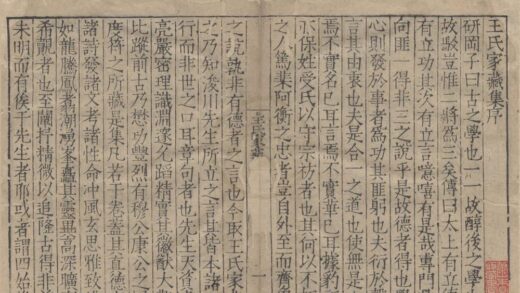 王氏家藏集序
研岡子曰古之學也一一故醇後之學
故駁豈惟一將爲三矣傳曰太上有立
有立功其次有立言噫嘻有是哉專門
向匪一得非三之說乎是故德者得也
心則發於事者爲功其匪躬也夫衍於
言其由衷也夫是合一之道也使無是
焉不實名巳耳言焉不實華巳耳據豹
亦保姓受氏以守宗祊者也其何以不
之人篤棐阿衡之忠者豈自外至而齊
王氏家藏
一
之說孰非有德者之言也今取王氏家
之乃知浚川先生所立之言其皆本諸
行而非世之口耳章句者也先生天資
亮嚴密理識淵邃允蹈精實其徽猷大
比蹤前古乃懋功豐列有穆公康公之
度將之所藏是集凡若干卷蓋其直德
諸詩發諸文考諸性命沖風玄思雅致
如龍騰鳳翥潮湧峯矗其靈異高深廣
希覯者也至闡抒精微以追隆古得非
未明而有俟于先生者耶或者謂四始